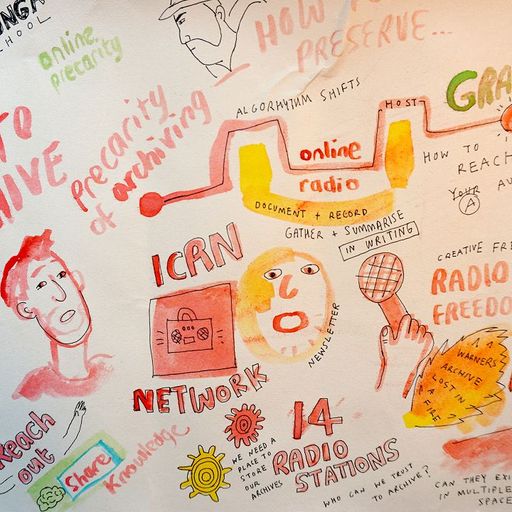 SCHOOL
online
precarity
HOW TO
PRESERVE...
TO
precarity
of archiving
ALGORHYTUM SHIFTS
HOST
online
radio
DOCUMENT + RECORD
GATHER + SUMMARISE
IN WRITING
HOW TO
REACH
YOUR
A
ICRN
NETWORK
NEWSLETTER
CREATIVE
RADIO
WARNERS
ARCHIVE
LOST IN
A
FIRE
Reach
out
Share
Knowledge
WE NEED A
PLACE TO
STORE
OUR
ARCHIVES
14
RADIO
STATIONS
WHO CAN WE TRUST
TO ARCHIVE?
CAN THEY
IN MULTIPLE